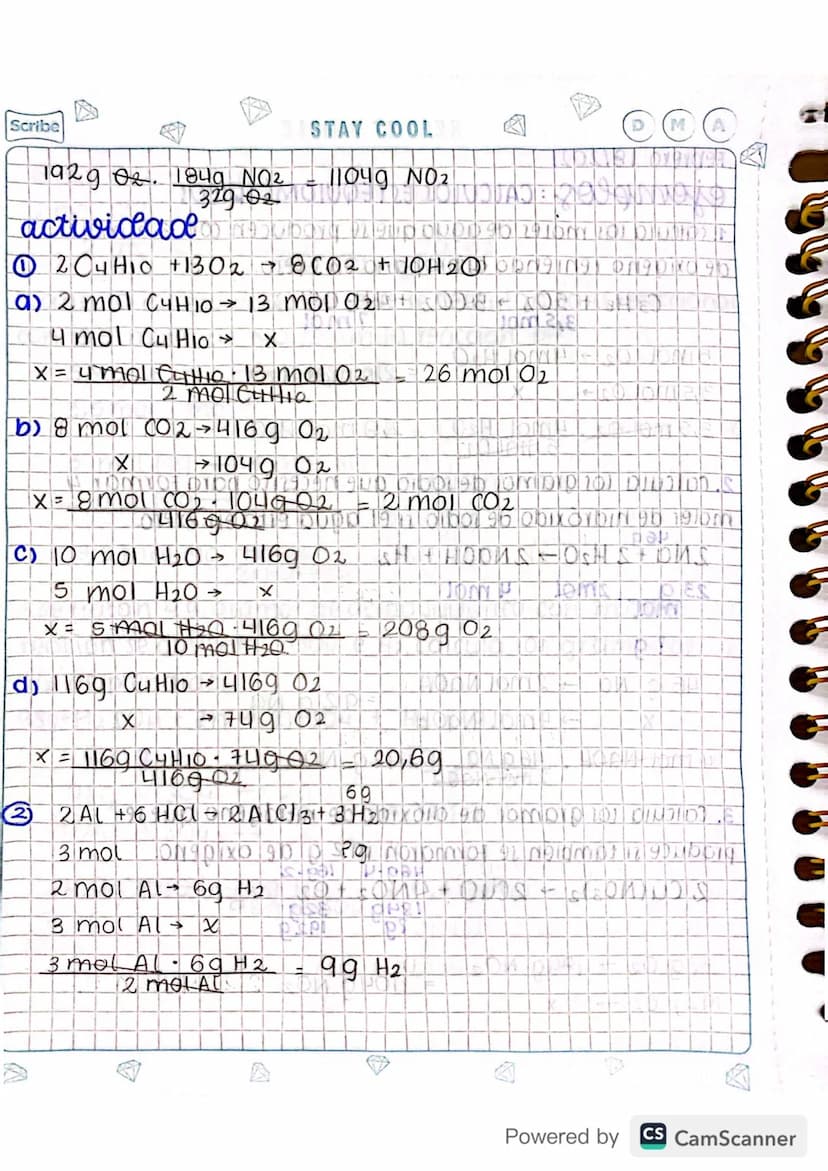 Scribe
STAY COOL
D M A
192g O2. 184g NO2 = 1104g NO2
32g O2
actividad
① 2C4H10 + 13O2 → 8CO2 + 10H2O
a) 2 mol C4H10 → 13 mol O2
4 mol C4H10 → x
x = 4 mol C4H10 · 13 mol O2 = 26 mol O2
2 mol C4H10
b) 8 mol CO2 → 416g O2
x → 104g O2
x = 8 mol CO2 · 104g O2 = 2 mol CO2
416g O2
c) 10 mol H2O → 416g O2
5 mol H2O → x
x = 5 mol H2O · 416g O2 = 208g O2
10 mol H2O
d) 116g C4H10 → 416g O2
x → 74g O2
x = 116g C4H10 · 74g O2 = 20,6g
416g O2
6g
② 2Al + 6HCl → 2AlCl3 + 3H2
3 mol ?g
2 mol Al → 6g H2
3 mol Al → x
3 mol Al · 6g H2 = 9g H2
2 mol Al
Powered by CS CamScanner